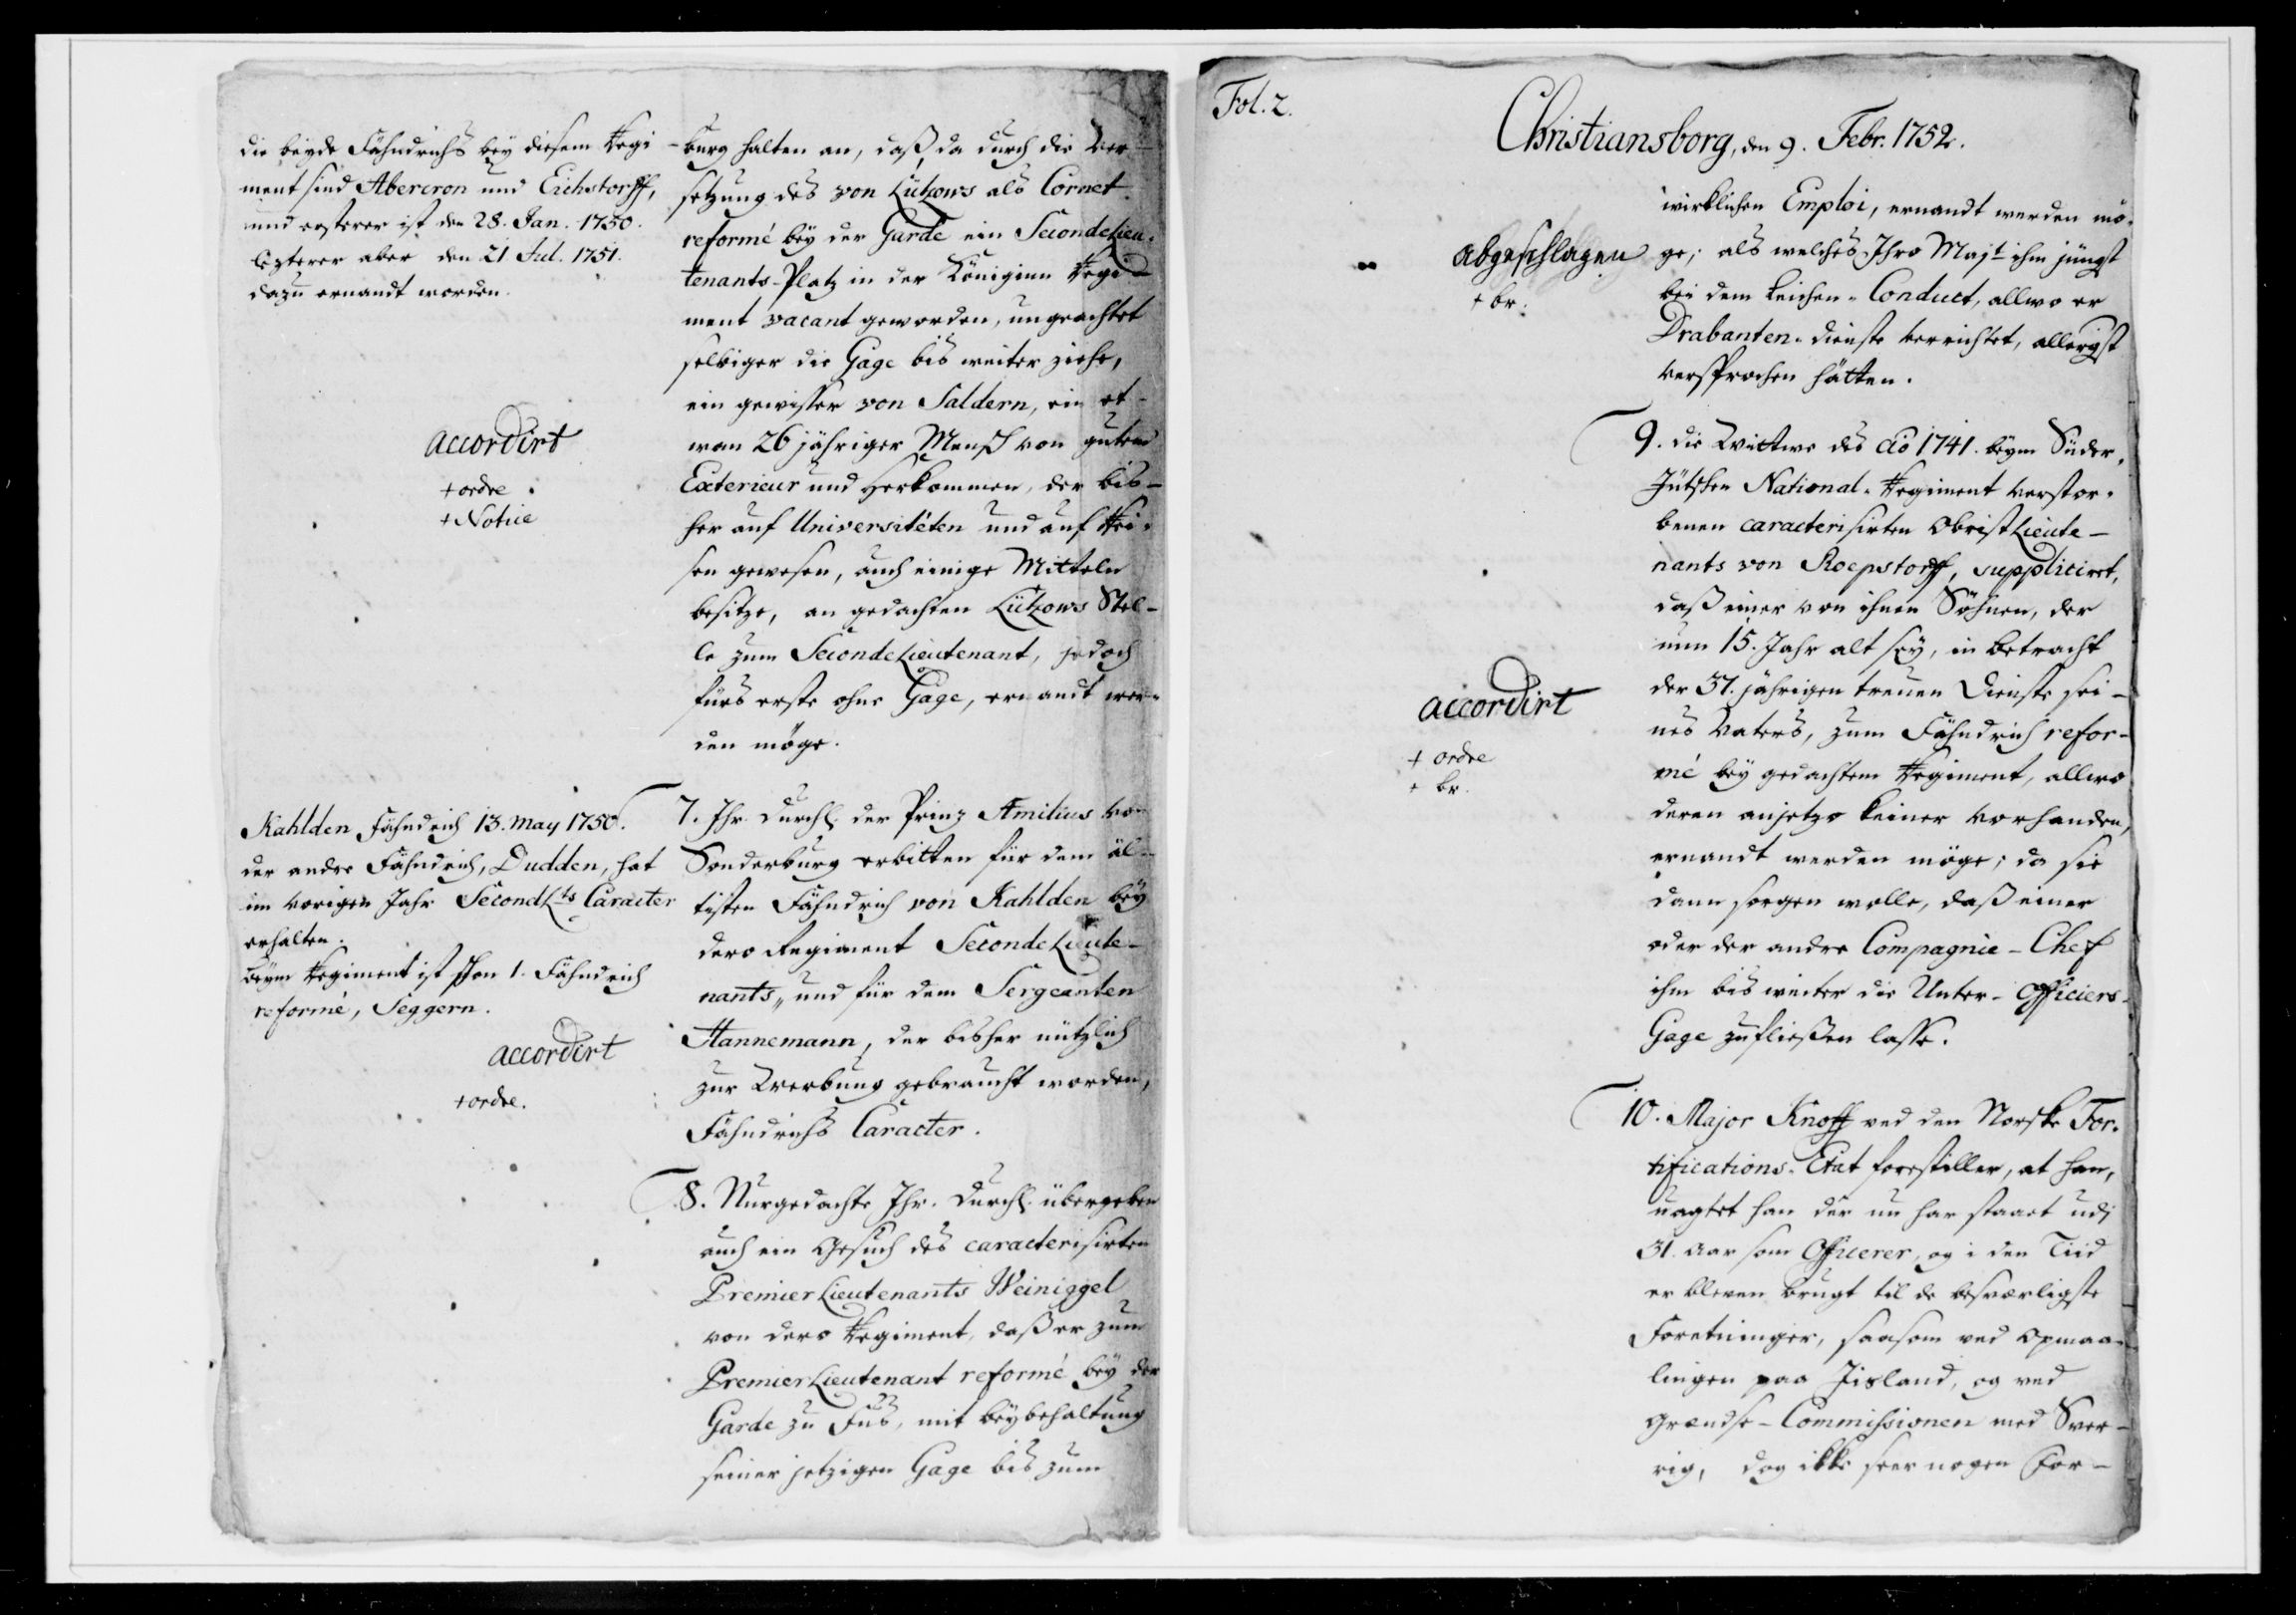 die beyde Fähndrichs bey diesem Regi-
ment sind Abercron und Eichstorff,
und ersterer ist den 28. Jan. 1750.
lezterer aber den 21 Jul. 1751.
dazu ernandt worden.
accordirt
+ ordre
+ Notice
Kahlden Fähndrich 13. May 1750.
der andre Fähndrich, Dudden, hat
im vorigen Jahr SecondLts Caracter
erhalten.
beym Regiment ist schon 1. Fähndrich
reformé, Seggern.
accordirt
+ ordre.
burg halten an, daß, da durch die Ver-
setzung des von Lützows als Cornet
reformé bey der Garde ein SecondeLieu-
tenants-Platz in der Königinn Regi-
ment vacant geworden, ungeachtet
selbiger die Gage bis weiter ziehe,
ein gewisser von Saldern, ein et-
wan 26 jähriger Mensch von gutem
Exterieur und Herkommen, der bis-
her auf Universitéten und auf Rei-
sen gewesen, auch einige Mitteln
besitze, an gedachten Lützows Stel-
le zum SecondeLieutenant, jedoch
fürs erste ohne Gage, ernandt wer-
den möge.
7. Ihr. Durchl. der Prinz Æmilius von
Sonderburg erbitten für dem äl-
tisten Fähndrich von Kahlden bey
dero Regiment SecondeLieute-
nants„ und für dem Sergeanten
Hannemann, der bisher nützlich
zur Werbung gebraucht worden,
Fähndrichs Caracter.
8. Nurgedachte Ihr. Durchl. übergeben
auch ein Gesuch des caracterisirten
PremierLieutenants Weiniggel
von dero Regiment, daß er zum
PremierLieutenant reformé bey der
Garde zu Fus, mit beybehaltung
seiner jetzigen Gage bis zum
Fol. 2.
Christiansborg, den 9. Febr. 1752.
wirklichen Emploi, ernandt werden mö-
ge; als welches Ihro Majt ihm jüngst
bei dem Leichen-Conduct, allwo er
Drabanten-dienste verrichtet, allergst
versprochen hätten.
abgeschlagen
+ br.
9. die Wittwe des aō 1741. beym Süder-
Jütschen National-Regiment verstor-
benen caracterisirten ObristLieute-
nants von Roepstorff, suppliciret,
daß einer von ihren Söhnen, der
nun 15. Jahr alt sey, in betracht
der 37. jährigen treuen Dienste sei-
nes Vaters, zum Fähndrich refor-
mé bey gedachtem Regiment, allwo
deren anjetzo keiner vorhanden,
ernandt werden möge; da sie
dann sorgen wolle, daß einer
oder der andre Compagnie-Chef
ihm bis weiter die Unter-Officiers-
Gage zufließen lasse.
accordirt
+ ordre
+ br.
10. Major Knoff ved den Norske For-
tifications-Etat forestiller, at han,
uagtet han der nu har staaet udi
31. Aar som Officerer, og i den Tiid
er bleven brugt til de besværligste
Foretninger, saasom ved Opmaa-
lingen paa Jisland, og ved
Grændse-Commissionen med Sver-
rig, dog ikke seer nogen For-